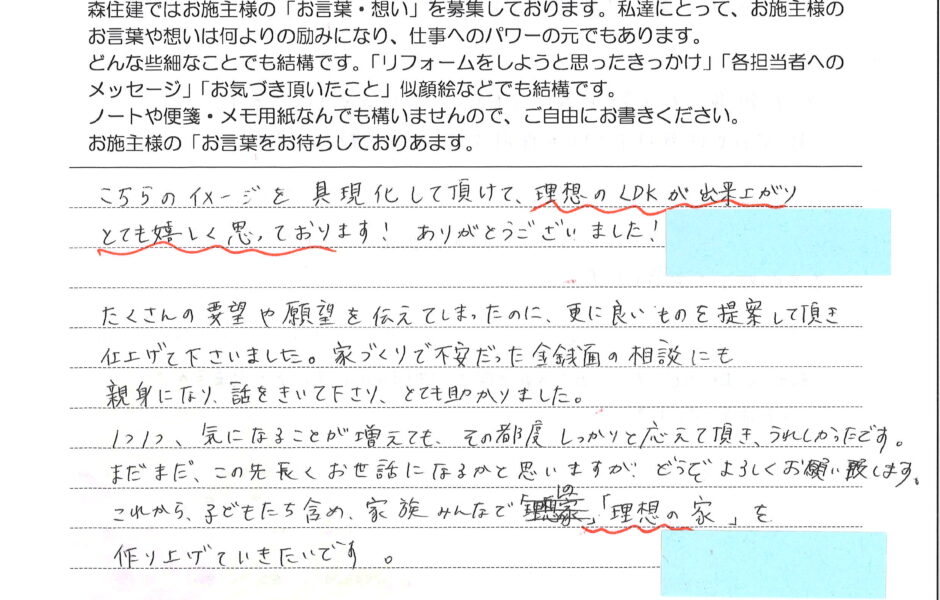 森住建ではお施主様の「お言葉・想い」を募集しております。私達にとって、お施主様の
お言葉や想いは何よりの励みになり、仕事へのパワーの元でもあります。
どんな些細なことでも結構です。「リフォームをしようと思ったきっかけ」「各担当者への
メッセージ」「お気づき頂いたこと」似顔絵などでも結構です。
ノートや便箋・メモ用紙なんでも構いませんので、ご自由にお書きください。
お施主様の「お言葉をお待ちしておりあます。
こちらのイメージを具現化して頂けて、理想のLDKが出来上がり
とても嬉しく思っております! ありがとうございました!
たくさんの要望や願望を伝えてしまったのに、更に良いものを提案して頂き
仕上げて下さいました。家づくりで不安だった金銭面の相談にも
親身になり、話をきいて下さり、とても助かりました。
1つ1つ、気になることが増えても、その都度しっかりと応えて頂き、うれしかったです。
まだまだ、この先長くお世話になるかと思いますが、どうぞよろしくお願い致します。
これから、子どもたち含め、家族みんなで「理想の家」を
作り上げていきたいです。